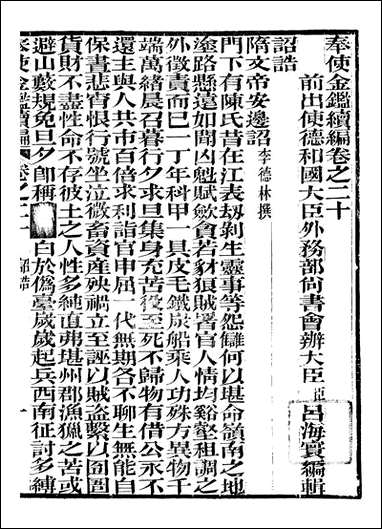 奉使金鑑續編卷之二十
前出使德和國大臣外務部尚書會辦大臣臣呂海寰編輯
詔誥
隋文帝安邊詔 李德林撰
門下有陳氏昔在江表刼剝生靈事等怨讎何以堪命嶺南之地
塗路懸遠如聞凶魁賦斂貪若豺狼賊署官人情均谿壑租調之
外徵責而已一丁年科甲一具皮毛鐵炭船乘人功殊方異物千
端萬緒晨召暮行夕求旦集身充苦役至死不歸物有借公永不
還主與人共市百倍求利詣官申屈一代無期各不聊生無能自
保晝悲宵恨行號坐泣微畜資產殃禍立至誣以賊盜繫以囹圄
貨財不盡性命不存彼土之人性多純直弗堪州郡漁獵之苦或
避山藪規免旦夕卽稱 白於僞臺歲歲起兵西南征討多縛
奉使金鑑續編 卷之二十 詔誥 一